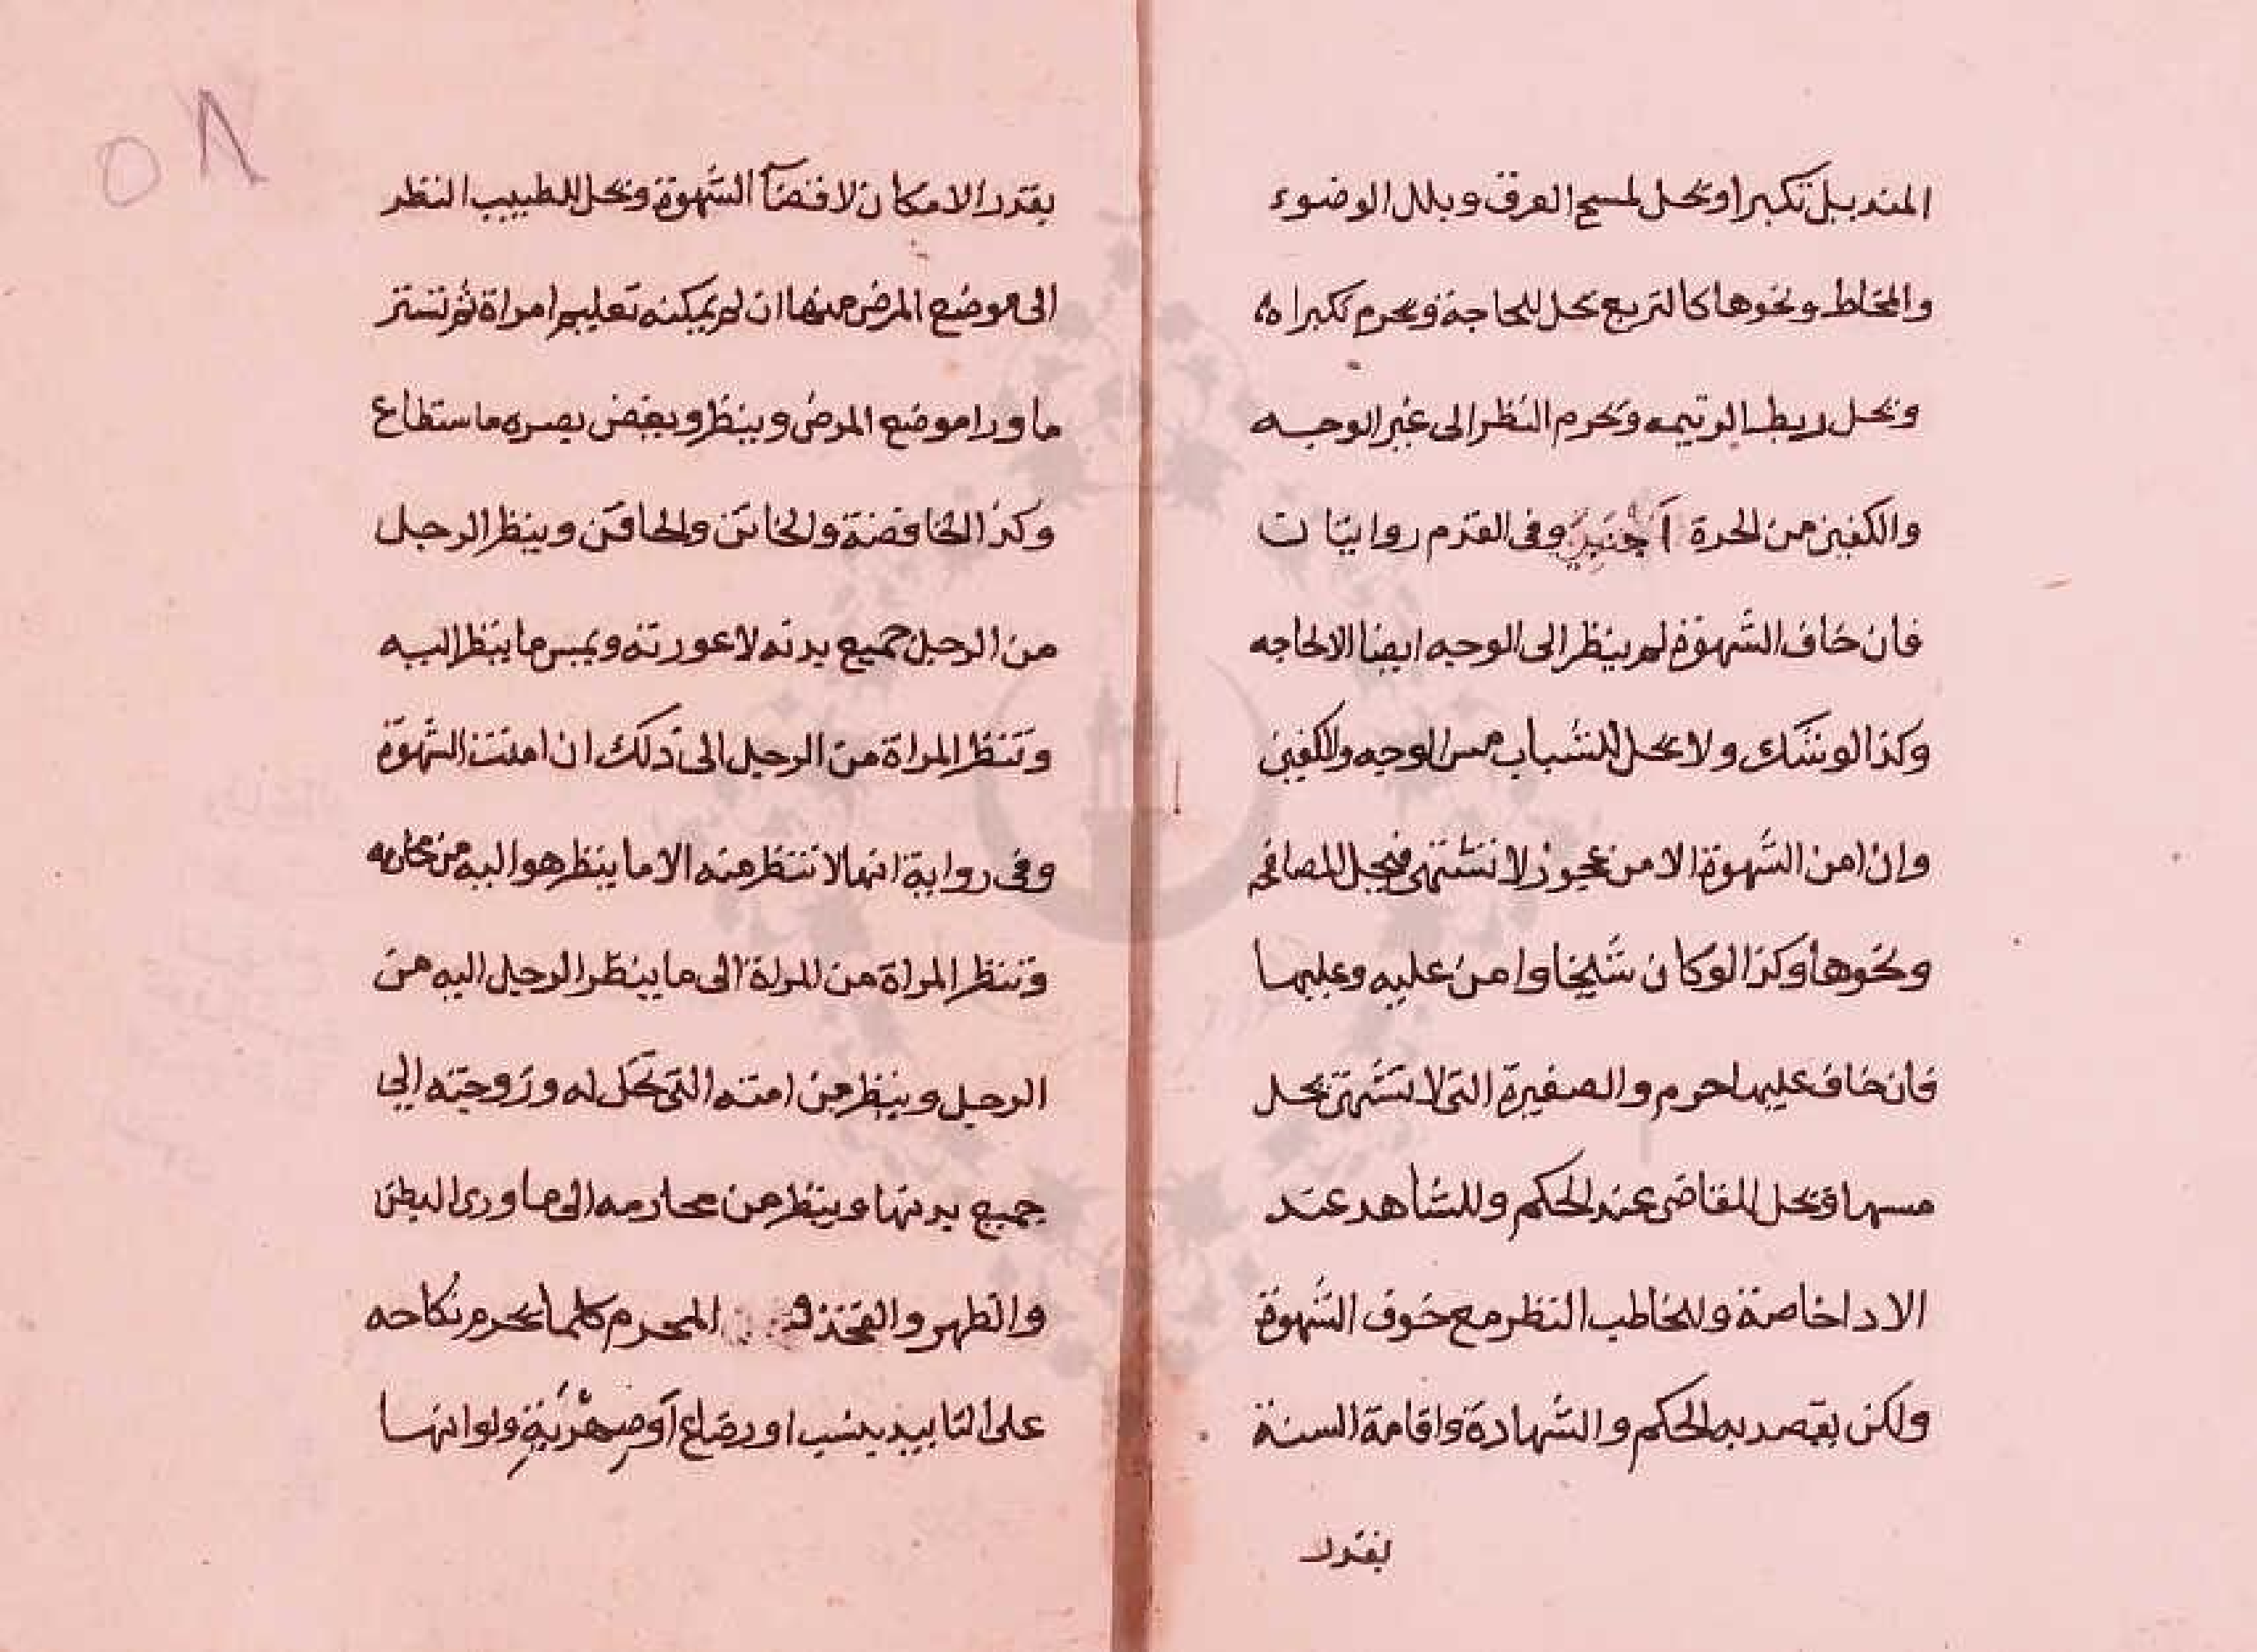 المنديل تكبرا ويحل لمسح العرق وبلل الوضوء
والمخاط ونحوها كالتربع يحل للحاجة ويحرم تكبرا
ويحل ربط الرتيمه ويحرم النظر الى غير الوجه
والكفين من الحرة اجنبية وفى القدم روايتان
فان خاف الشهوة لم ينظر الى الوجه ايضا الا لحاجه
وكذا لو شك ولا يحل للشباب مس الوجه والكفين
وان امن الشهوة الا من عجوز لا تشتهى فيحل المصافحه
ونحوها وكذا لو كان شيخا وامن عليه وعليها
فان خاف عليها حرم والصغيرة التى لا تشتهى يحل
مسها ويحل للقاضى عند الحكم وللشاهد عند
الادا خاصة وللخاطب النظر مع خوف الشهوة
ولكن يقصد به الحكم والشهادة واقامة السنة
بقدر
٥٨
بقدر الامكان لا قضآ الشهوة ويحل للطبيب النظر
الى موضع المرض منها ان لم يمكنه تعليم امراة ثم تستر
ما ورا موضع المرض وينظر ويغض بصره ما ستطاع
وكذا الخافضة والخاتن والحاقن وينظر الرجل
من الرجل جميع بدنه لا عورته ويمس ما ينظر اليه
وتنظر المراة من الرجل الى ذلك ان امنت الشهوة
وفى رواية انها لا تنظر منه الا ما ينظر هو اليه من محارمه
وتنظر المراة من المراة الى ما ينظر الرجل اليه من
الرجل وينظر من امته التى تحل له وزوجته الى
جميع بدنها وينظر من محارمه الى ما ورى البطن
والظهر والفخذ و المحرم كلما يحرم نكاحه
على التابيد بنسب او رضاع أو صهرية ولو انها